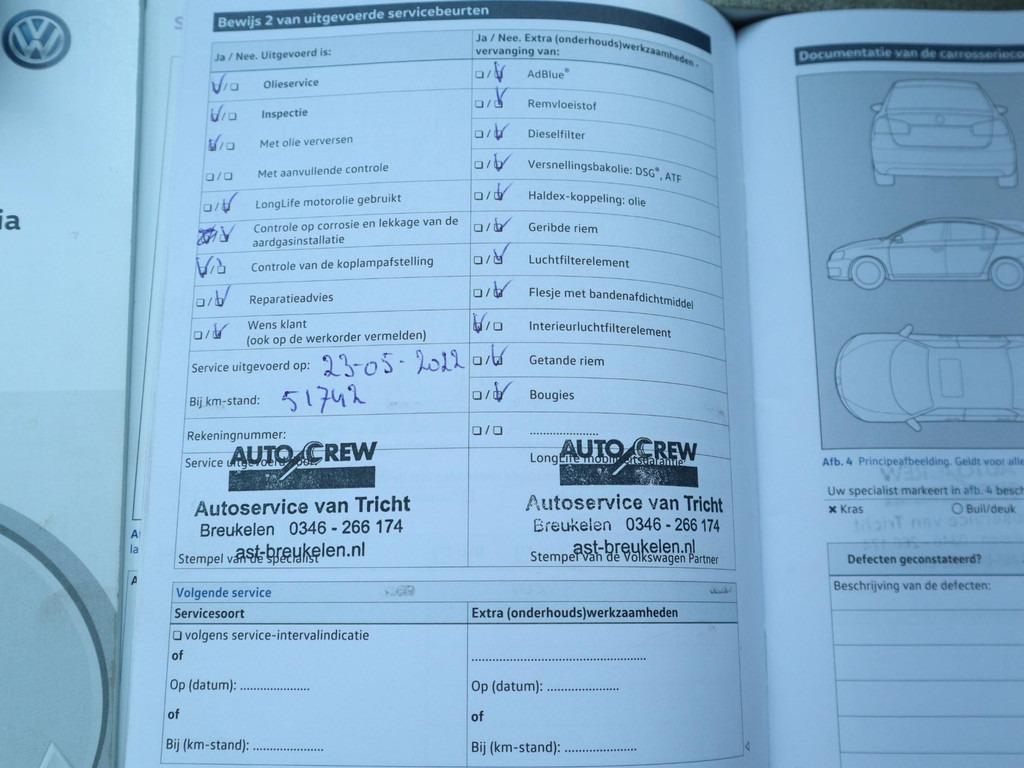 ia
Bewijs 2 van uitgevoerde servicebeurten
Ja / Nee. Uitgevoerd is:
Olieservice
Inspectie
Met olie verversen
Met aanvullende controle
LongLife motorolie gebruikt
Controle op corrosie en lekkage van de
aardgasinstallatie
Controle van de koplampafstelling
Reparatieadvies
Wens klant
(ook op de werkorder vermelden)
Service uitgevoerd op: 23-05-2022
Bij km-stand: 51742
Rekeningnummer:
Service uitgevoerd door:
AUTO CREW
Autoservice van Tricht
Breukelen 0346 - 266 174
ast-breukelen.nl
Stempel van de specialist
Ja / Nee. Extra (onderhouds)werkzaamheden -
vervanging van:
AdBlue®
Remvloeistof
Dieselfilter
Versnellingsbakolie: DSG®, ATF
Haldex-koppeling: olie
Geribde riem
Luchtfilterelement
Flesje met bandenafdichtmiddel
Interieurluchtfilterelement
Getande riem
Bougies
....................
LongLife mobiliteitsgarantie
AUTO CREW
Autoservice van Tricht
Breukelen 0346 - 266 174
ast-breukelen.nl
Stempel van de Volkswagen Partner
Volgende service
Servicesoort
volgens service-intervalindicatie
of
Op (datum): ....................
of
Bij (km-stand): ....................
Extra (onderhouds)werkzaamheden
..................................................
Op (datum): ....................
of
Bij (km-stand): ....................
A
la
A
Documentatie van de carrosserieco
Afb. 4 Principeafbeelding. Geldt voor alle
Uw specialist markeert in afb. 4 besch
× Kras
Buil/deuk
Defecten geconstateerd?
Beschrijving van de defecten: